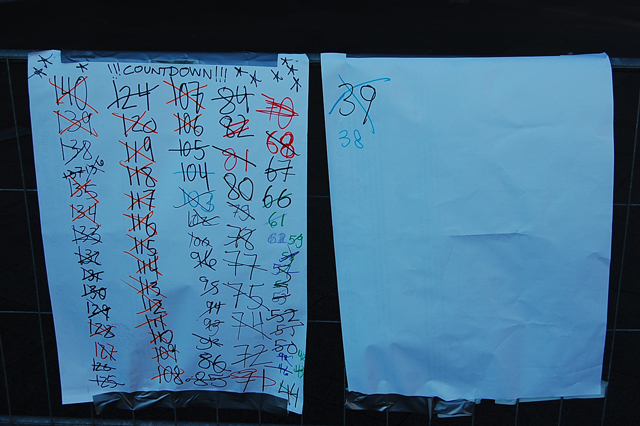 !!! COUNTDOWN !!!
140 124 107 84 70
139 120 106 82 68
138 119 105 81 67
137 136 118 104 80 66
135 117 103 79 61
134 116 102 78 62 59
133 115 100 77
132 114 96 75
131 113 95 74
130 112 94 72 52
129 111 93 71 51
128 110 92 50
127 109 86 44
126 108 85
125
39
38